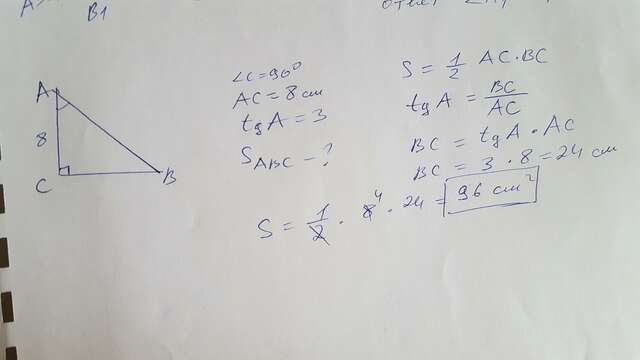 B1
ответ
A
8
C
B
∠C=90°
AC=8 cm
tgA=3
S_ABC-?
S=1/2 AC·BC
tgA=BC/AC
BC=tgA·AC
BC=3·8=24 cm
S=1/2·8⁴·24=96 cm²